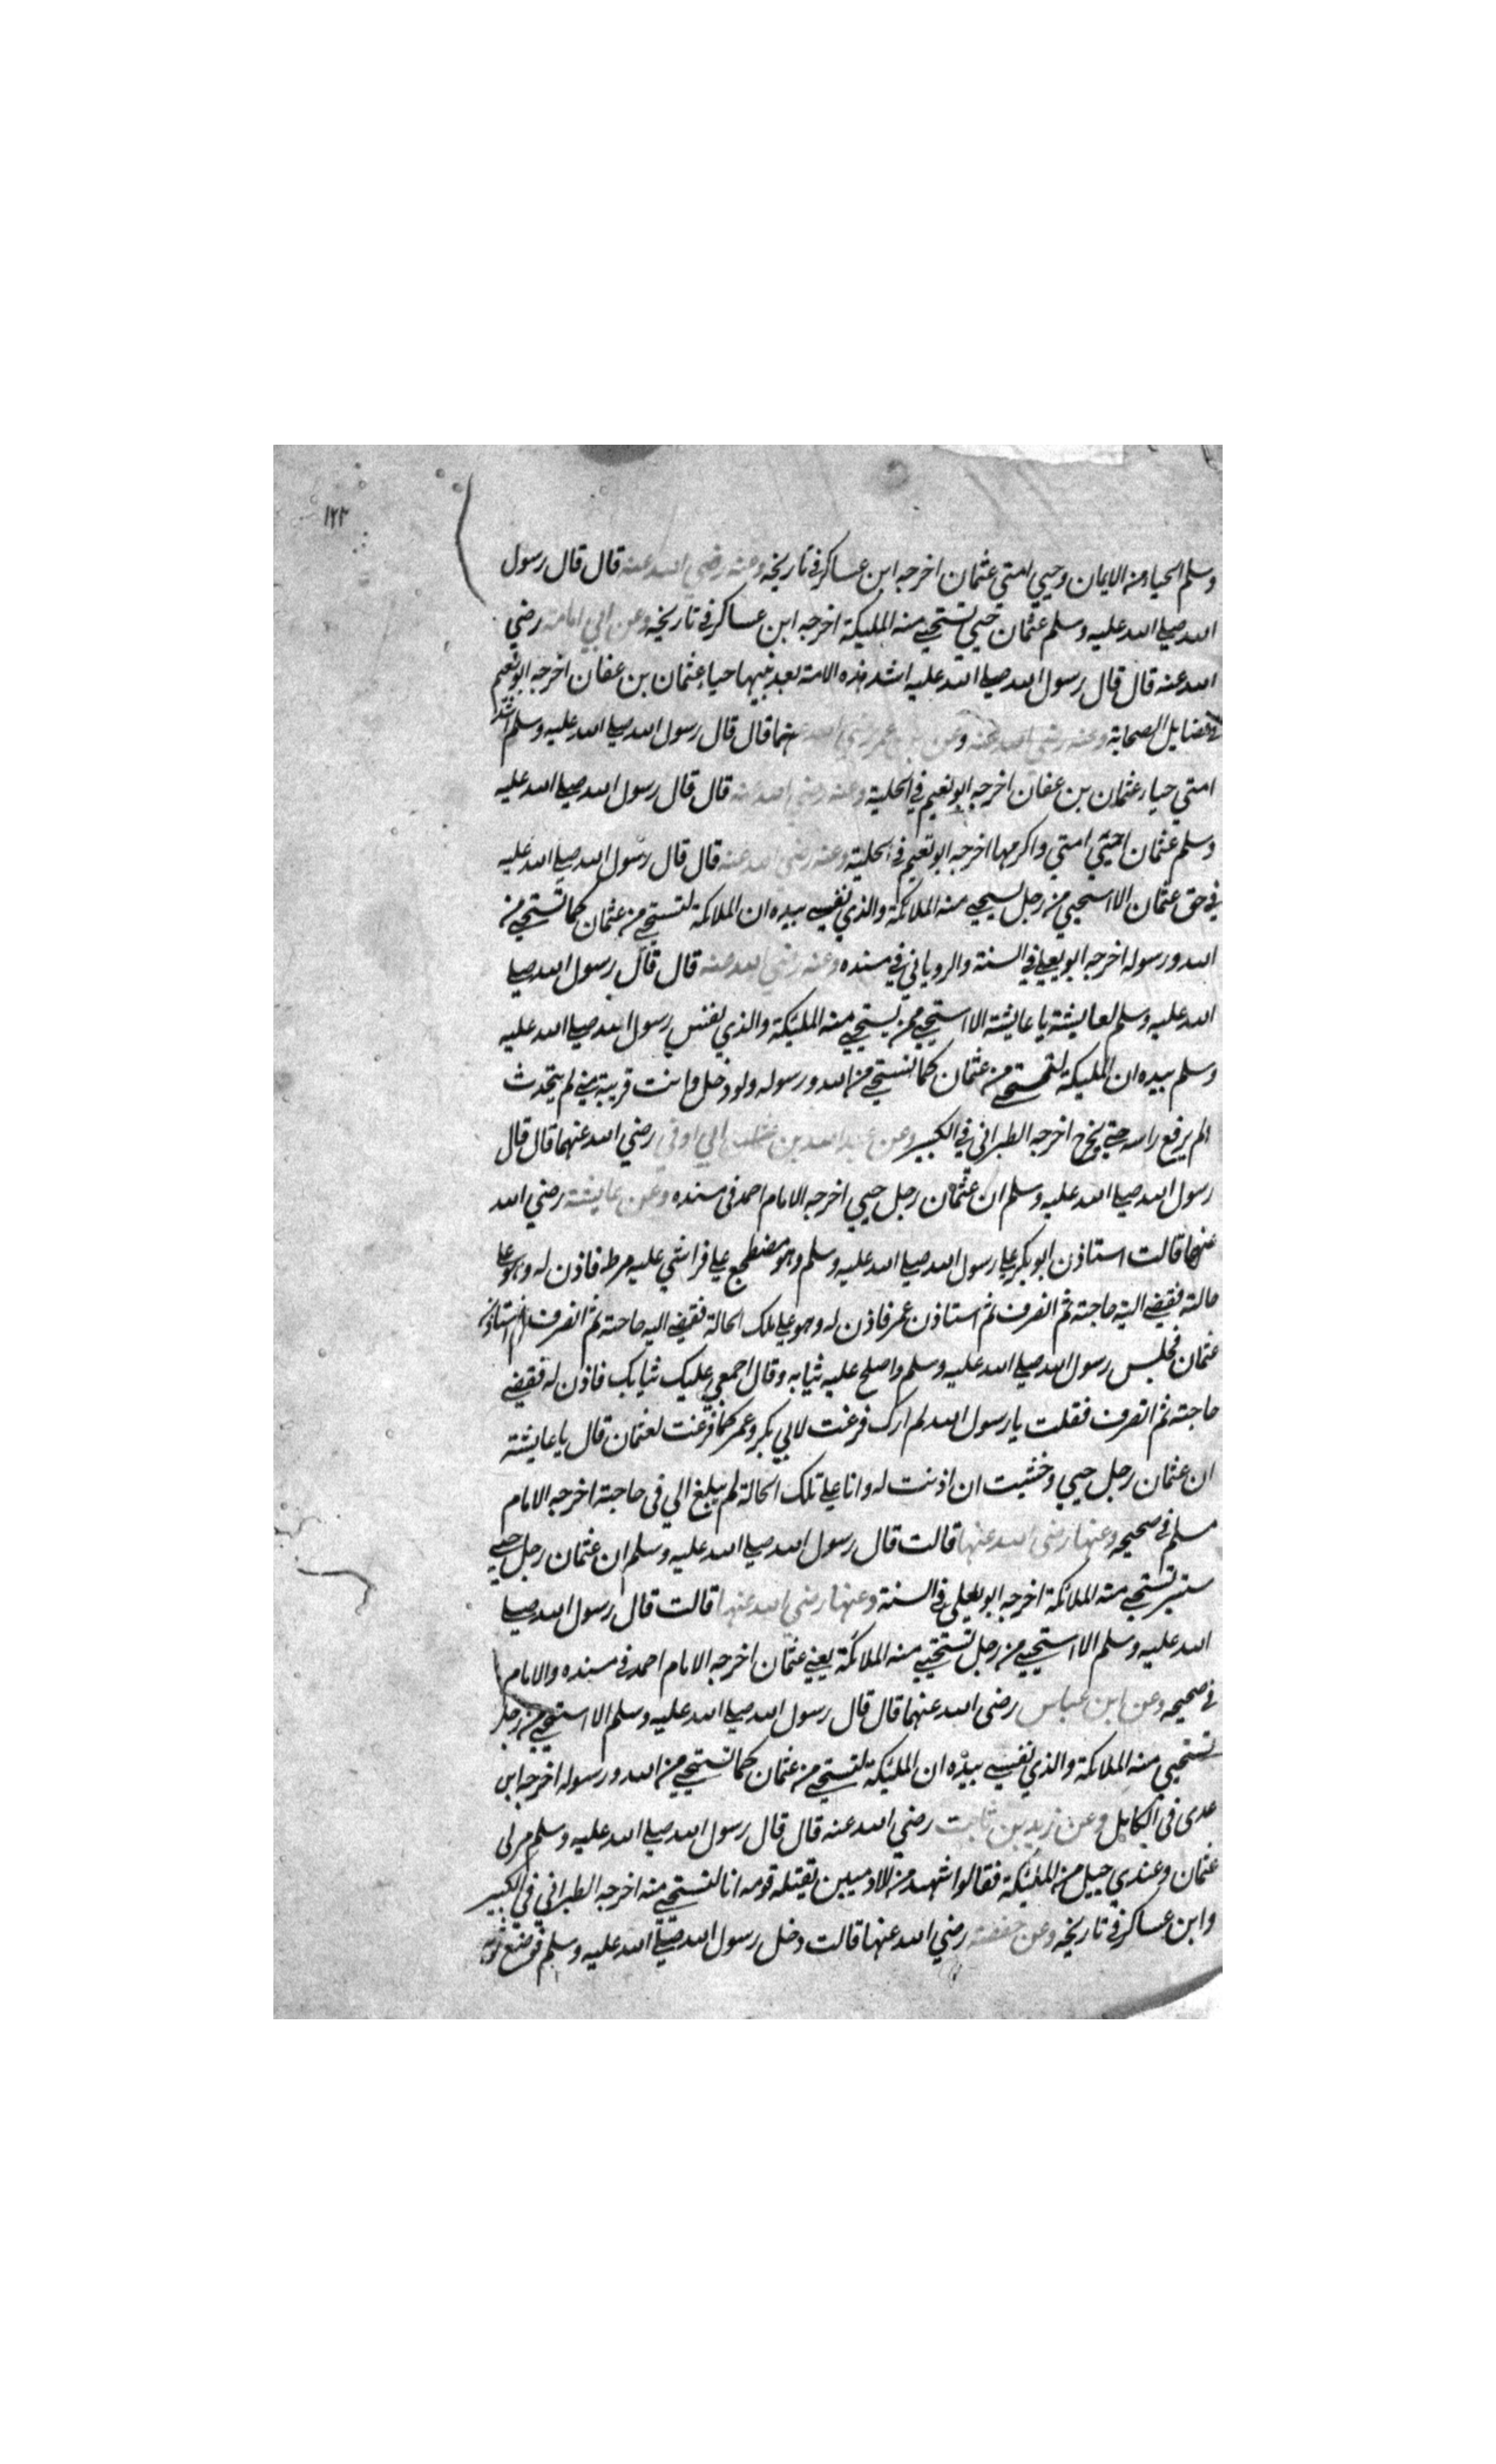 ١٢٣
وسلم الحياء من الايمان وحيي امتي عثمان اخرجه ابن عساكر في تاريخه وعنه رضي الله عنه قال قال رسول
الله صلي الله عليه وسلم عثمان حيي تستحيي منه المليكة اخرجه ابن عساكر في تاريخه وعن ابي امامة رضي
الله عنه قال قال رسول الله صلي الله عليه اشد هذه الامة بعد نبيها حياء عثمان بن عفان اخرجه ابو نعيم
في فضايل الصحابة وعنه رضي الله عنه وعن بن عمر رضي الله عنهما قال قال رسول الله صلي الله عليه وسلم اشد
امتي حياء عثمان بن عفان اخرجه ابو نعيم في الحلية وعنه رضي الله عنه قال قال رسول الله صلي الله عليه
وسلم عثمان احيي امتي واكرمها اخرجه ابو نعيم في الحلية وعنه رضي الله عنه قال قال رسول الله صلي الله عليه
في حق عثمان الا استحيي من رجل تستحيي منه الملائكة والذي نفسي بيده ان الملائكة لتستحي من عثمان كما تستحي من
الله ورسوله اخرجه ابو يعلي في السنة والروياني في مسنده وعنه رضي الله عنه قال قال رسول الله صلي
الله عليه وسلم لعايشة يا عايشة الا استحيي ممن يستحيي منه المليكة والذي نفس رسول الله صلي الله عليه
وسلم بيده ان المليكة لتستحي من عثمان كما تستحي من الله ورسوله ولو دخل وانت قريبة مني لم يتحدث
لم يرفع راسه حتي يخرج اخرجه الطبراني في الكبير وعن عبد الله بن ابي اوفي رضي الله عنهما قال قال
رسول الله صلي الله عليه وسلم ان عثمان رجل حيي اخرجه الامام احمد في مسنده وعن عايشة رضي الله
عنها قالت استاذن ابو بكر علي رسول الله صلي الله عليه وسلم وهو مضطجع علي فراشي عليه مرطه فاذن له وهو علي
حالته فقضي اليه حاجته ثم انصرف ثم استاذن عمر فاذن له وهو علي تلك الحالة فقضي اليه حاجته ثم انصرف ثم استاذن
عثمان فجلس رسول الله صلي الله عليه وسلم واصلح عليه ثيابه وقال اجمعي عليك ثيابك فاذن له فقضي
حاجته ثم انصرف فقلت يا رسول الله لم ارك فرغت لابي بكر وعمر كما فرغت لعثمان قال يا عايشة
ان عثمان رجل حيي وخشيت ان اذنت له وانا علي تلك الحالة لم يبلغ الي في حاجته اخرجه الامام
مسلم في صحيحه وعنها رضي الله عنها قالت قال رسول الله صلي الله عليه وسلم ان عثمان رجل حيي
ستير تستحيي منه الملائكة اخرجه ابو يعلي في السنة وعنها رضي الله عنها قالت قال رسول الله صلي
الله عليه وسلم الا استحيي من رجل تستحيي منه الملائكة يعني عثمان اخرجه الامام احمد في مسنده والامام
في صحيحه وعن ابن عباس رضي الله عنهما قال قال رسول الله صلي الله عليه وسلم الا استحيي من رجل
تستحيي منه الملائكة والذي نفسي بيده ان المليكة لتستحي من عثمان كما تستحي من الله ورسوله اخرجه ابن
عدي في الكامل وعن زيد بن ثابت رضي الله عنه قال قال رسول الله صلي الله عليه وسلم مر بي
عثمان وعندي جيل من المليكة فقالوا شهيد من الادميين يقتله قومه انا لنستحي منه اخرجه الطبراني في الكبير
وابن عساكر في تاريخه وعن حفصة رضي الله عنها قالت دخل رسول الله صلي الله عليه وسلم فوضع ثوبه